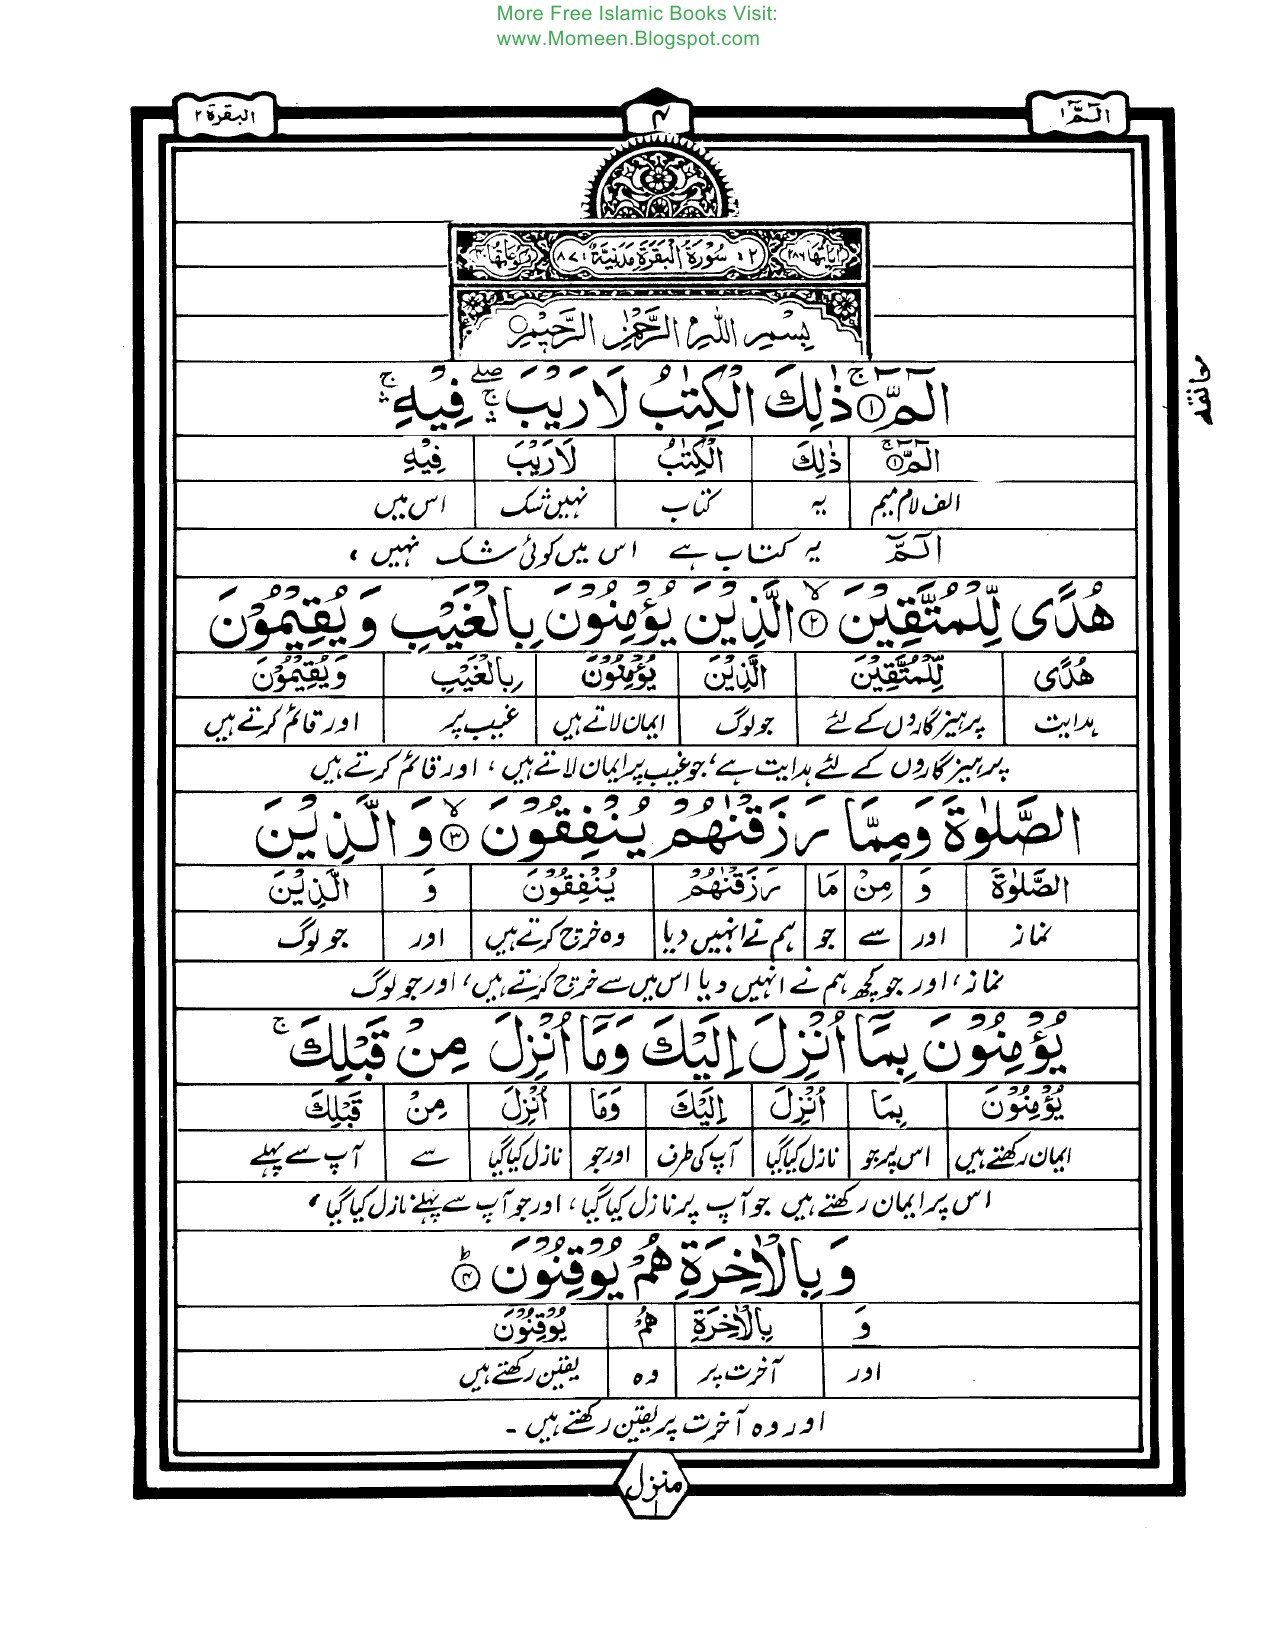 More Free Islamic Books Visit:
www.Momeen.Blogspot.com
الٓمّٓ ١
۴
البقرة ٢
اٰیاتھا ٢٨٦
٢: سُوْرَةُ الْبَقَرَةِ مَدَنِیَّةٌ: ٨٧
بِسْمِ اللّٰهِ الرَّحْمٰنِ الرَّحِیْمِ
معانقہ
الٓمّٓ ۚ﴿١﴾ ذٰلِكَ الْكِتٰبُ لَا رَیْبَ ۖۛۚ فِیْهِ ۛۚ
الٓمّٓ ۚ﴿١﴾ ذٰلِكَ الْكِتٰبُ لَا رَیْبَ فِیْهِ
الف لام میم یہ کتاب نہیں شک اس میں
الٓمّٓ یہ کتاب ہے اس میں کوئی شک نہیں ،
هُدًی لِّلْمُتَّقِیْنَ ۙ﴿٢﴾ الَّذِیْنَ یُؤْمِنُوْنَ بِالْغَیْبِ وَ یُقِیْمُوْنَ
هُدًی لِّلْمُتَّقِیْنَ الَّذِیْنَ یُؤْمِنُوْنَ بِالْغَیْبِ وَ یُقِیْمُوْنَ
ہدایت پرہیزگاروں کے لئے جو لوگ ایمان لاتے ہیں غیب پر اور قائم کرتے ہیں
پرہیزگاروں کے لئے ہدایت ہے، جو غیب پر ایمان لاتے ہیں ، اور قائم کرتے ہیں
الصَّلٰوةَ وَ مِمَّا رَزَقْنٰهُمْ یُنْفِقُوْنَ ۙ﴿٣﴾ وَ الَّذِیْنَ
الصَّلٰوةَ وَ مِنْ مَا رَزَقْنٰهُمْ یُنْفِقُوْنَ وَ الَّذِیْنَ
نماز اور سے جو ہم نے انہیں دیا وہ خرچ کرتے ہیں اور جو لوگ
نماز، اور جو کچھ ہم نے انہیں دیا اس میں سے خرچ کرتے ہیں، اور جو لوگ
یُؤْمِنُوْنَ بِمَاۤ اُنْزِلَ اِلَیْكَ وَ مَاۤ اُنْزِلَ مِنْ قَبْلِكَ ۚ
یُؤْمِنُوْنَ بِمَا اُنْزِلَ اِلَیْكَ وَمَا اُنْزِلَ مِنْ قَبْلِكَ
ایمان رکھتے ہیں اس پر جو نازل کیا گیا آپ کی طرف اور جو نازل کیا گیا سے آپ سے پہلے
اس پر ایمان رکھتے ہیں جو آپ پر نازل کیا گیا ، اور جو آپ سے پہلے نازل کیا گیا ،
وَ بِالْاٰخِرَةِ هُمْ یُوْقِنُوْنَ ؕ﴿۴﴾
وَ بِالْاٰخِرَةِ هُمْ یُوْقِنُوْنَ
اور آخرت پر وہ یقین رکھتے ہیں
اور وہ آخرت پر یقین رکھتے ہیں ۔
منزل ١